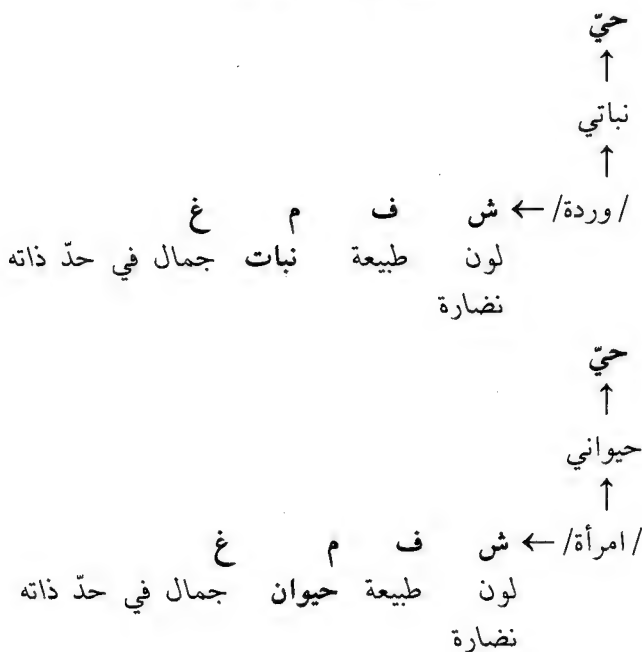 حيّ
↑
نباتي
↑
/وردة/ ← ش ف م غ
لون طبيعة نبات جمال في حدّ ذاته
نضارة
حيّ
↑
حيواني
↑
/امرأة/ ← ش ف م غ
لون طبيعة حيوان جمال في حدّ ذاته
نضارة